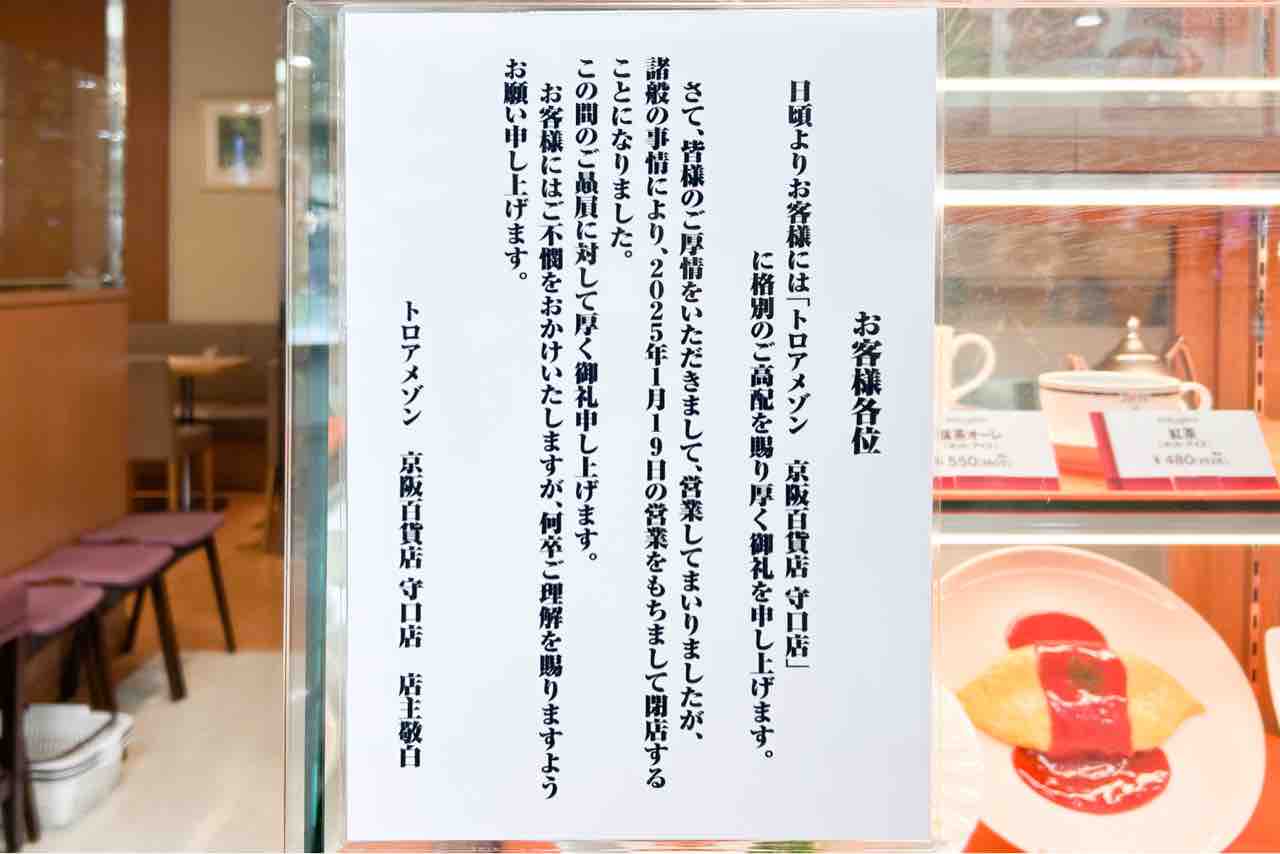 お客様各位
日頃よりお客様には「トロアメゾン　京阪百貨店 守口店」
に格別のご高配を賜り厚く御礼を申し上げます。
さて、皆様のご厚情をいただきまして、営業してまいりましたが、
諸般の事情により、2025年1月19日の営業をもちまして閉店する
ことになりました。
この間のご贔屓に対して厚く御礼申し上げます。
お客様にはご不憫をおかけいたしますが、何卒ご理解を賜りますよう
お願い申し上げます。
トロアメゾン　京阪百貨店 守口店　店主敬白
抹茶オーレ
550
紅茶
(ホット・アイス)
¥480